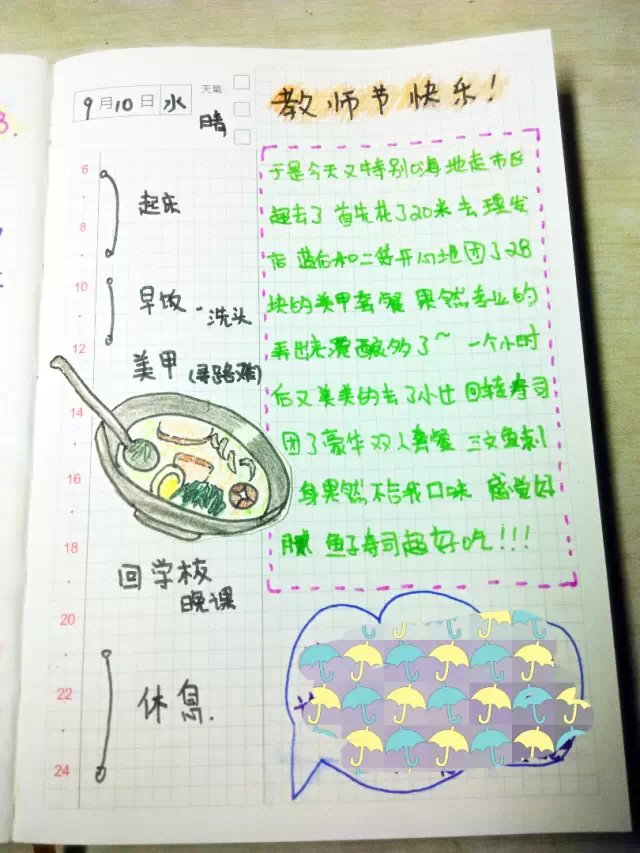 9月10日 水
天氣
晴
教师节快乐！
6
起床
8
10
早饭·洗头
12
美甲(寻路难)
14
16
18
回学校
晚课
20
22
休息.
24
于是今天又特别嗨地走市区
起去了 首先花了20米去理发
店 然后和二转开心地团了28
块的美甲套餐 果然专业的
弄出来漂亮够多了～ 一个小时
后又美美的去了小仕回转寿司
团了豪华双人套餐 三文鱼刺
身果然不合我口味 感觉好
腻 鱼子寿司超好吃!!!